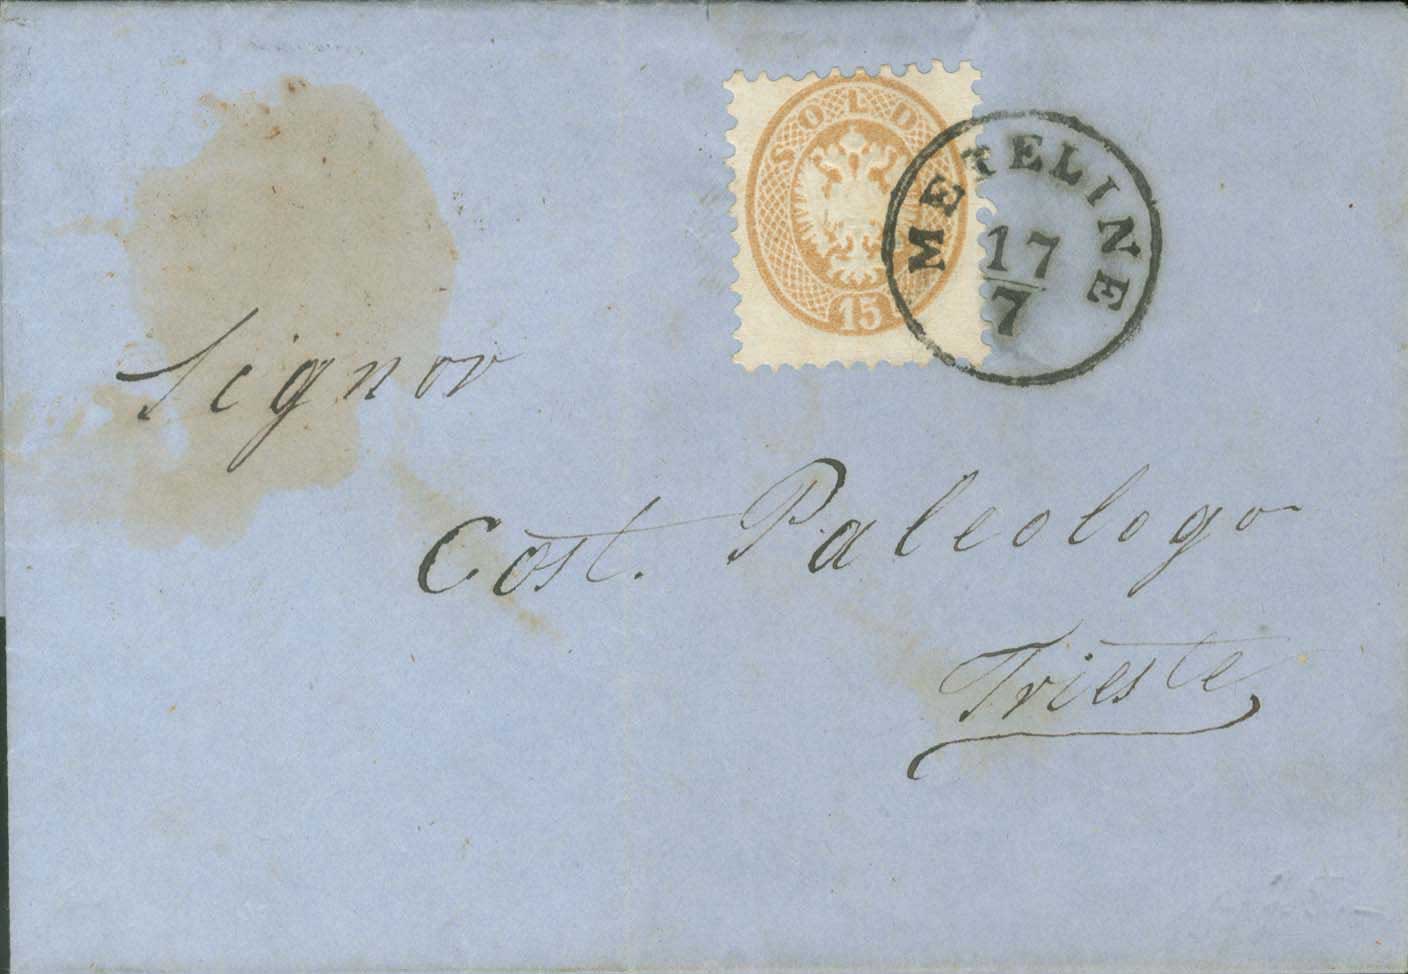 SOLDI
15
METELINE
17
7
Signor
Cost. Paleologo
Trieste